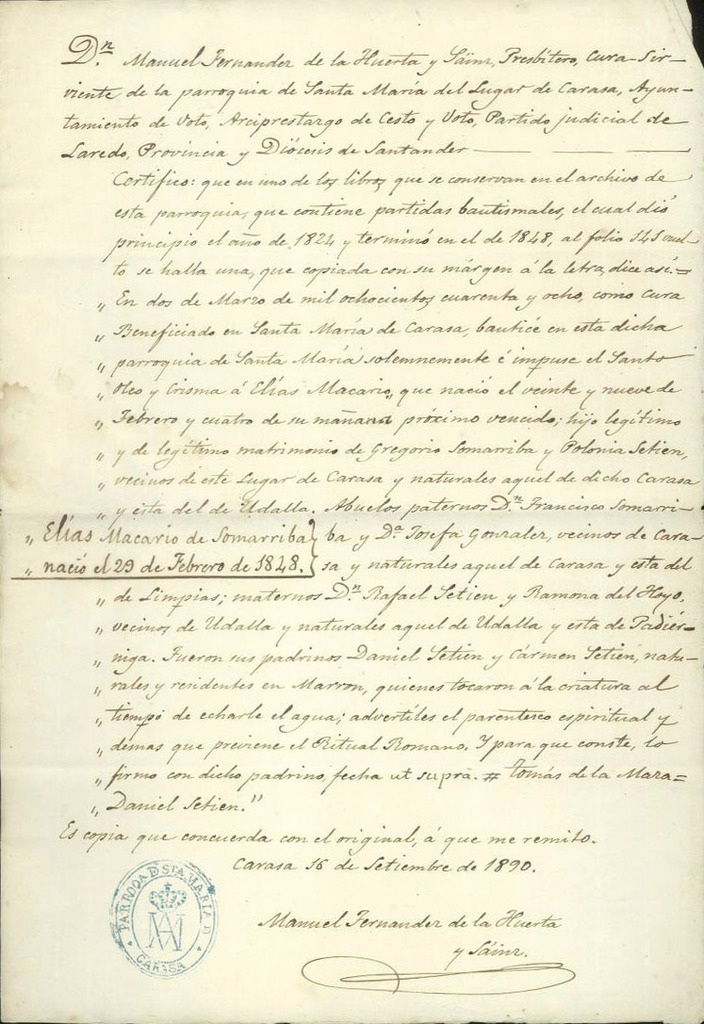 Dn. Manuel Fernandez de la Huerta y Sáinz, Presbítero, Cura Sir-
viente de la parroquia de Santa María del Lugar de Carasa, Ayun-
tamiento de Voto, Arciprestazgo de Cesto y Voto, Partido judicial de
Laredo, Provincia y Diócesis de Santander
Certifico: que en uno de los libros que se conservan en el archivo de
esta parroquia, que contiene partidas bautismales, el cual dió
principio el año de 1824 y terminó en el de 1848, al folio 141 vuel-
to se halla una, que copiada con su márgen á la letra, dice así=
„ En dos de Marzo de mil ochocientos cuarenta y ocho, como Cura
„ Beneficiado en Santa María de Carasa, bauticé en esta dicha
„ parroquia de Santa María solemnemente é impuse el Santo
„ Oleo y Crisma á Elías Macario, que nació el veinte y nueve de
„ Febrero y cuatro de su mañana próximo vencido; hijo legítimo
„ y de legítimo matrimonio de Gregorio Somarriba y Polonia Setien,
„ vecinos de este Lugar de Carasa y naturales aquel de dicho Carasa
„ y ésta del de Udalla. Abuelos paternos Dn. Francisco Somarri-
„ Elías Macario de Somarriba
„ nació el 29 de Febrero de 1848.
ba y Da. Josefa Gonzalez, vecinos de Cara-
sa y naturales aquel de Carasa y esta del
„ de Limpias; maternos Dn. Rafael Setien y Ramona del Hoyo,
„ vecinos de Udalla y naturales aquel de Udalla y esta de Padiér-
„ niga. Fueron sus padrinos Daniel Setien y Cármen Setien, natu-
„ rales y residentes en Marron, quienes tocaron á la criatura al
„ tiempo de echarle el agua; advertíles el parentesco espiritual y
„ demas que previene el Ritual Romano. Y para que conste, lo
„ firmo con dicho padrino, fecha ut supra. # Tomás de la Maza=
„ Daniel Setien."
Es copia que concuerda con el original, á que me remito.
Carasa 16 de Setiembre de 1890.
PARROQA D STA MARIA D
CARASA
Manuel Fernandez de la Huerta
y Sáinz.